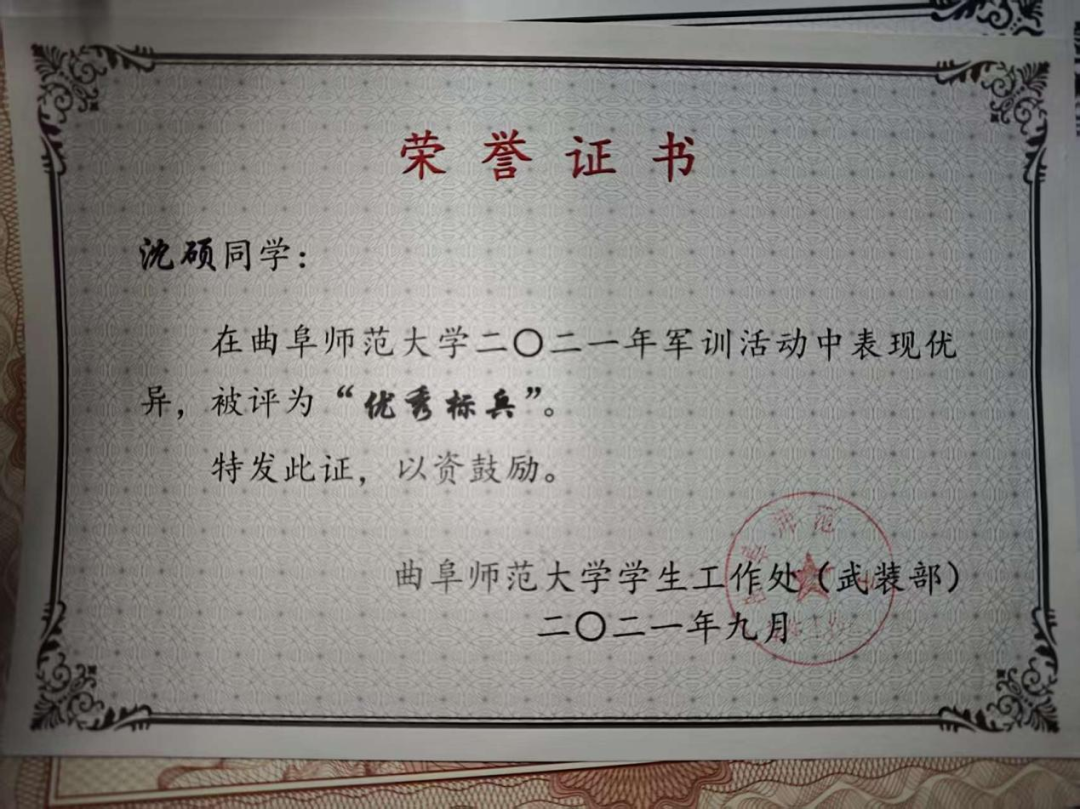 荣誉证书
沈硕同学：
在曲阜师范大学二〇二一年军训活动中表现优
异，被评为“优秀标兵”。
特发此证，以资鼓励。
曲阜师范大学学生工作处（武装部）
二〇二一年九月